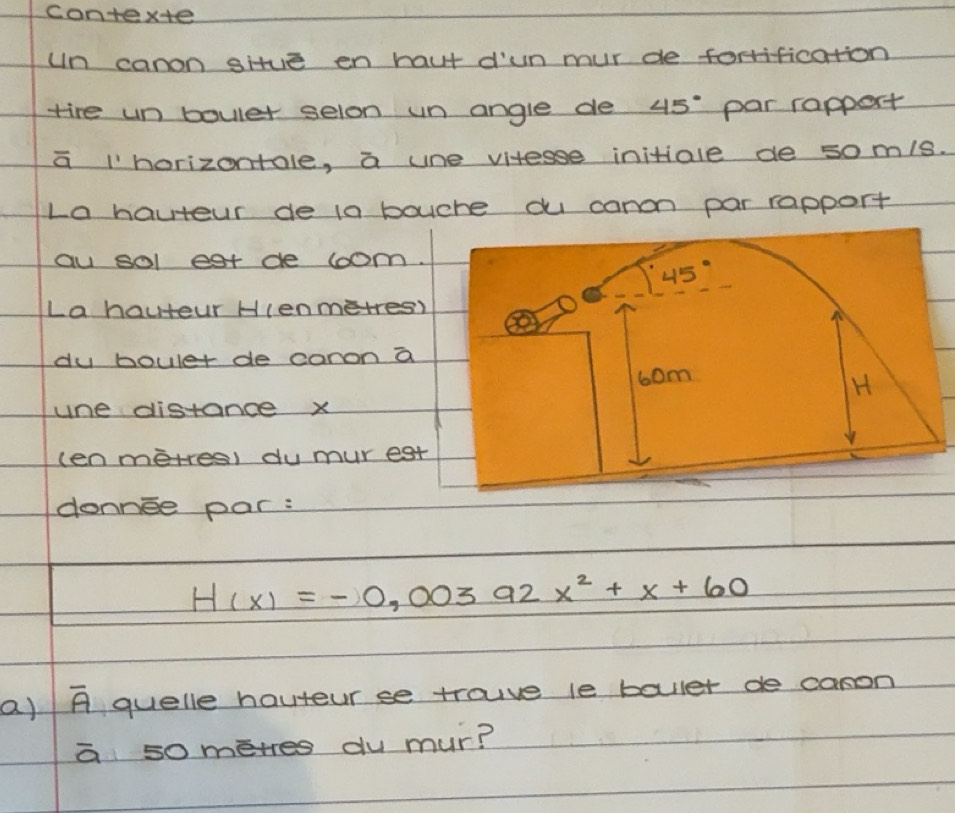 contexte
Un canon situē en haut d'un mur de fortification
tire un boulet selon un angle de 45° par rapport
ā l'horizontale, ā une vitesse initiale de 50 m/s.
La hauteur de la bouche du canon par rapport
au sol est de 60m.
La hauteur H(en mētres)
du boulet de canon ā
une distance x
(en mētres) du mur est
donnēe par:
45°
60m
H
H(x) = -0,00392x² + x + 60
a) Ā quelle hauteur se trouve le boulet de canon
ā 50 mētres du mur?